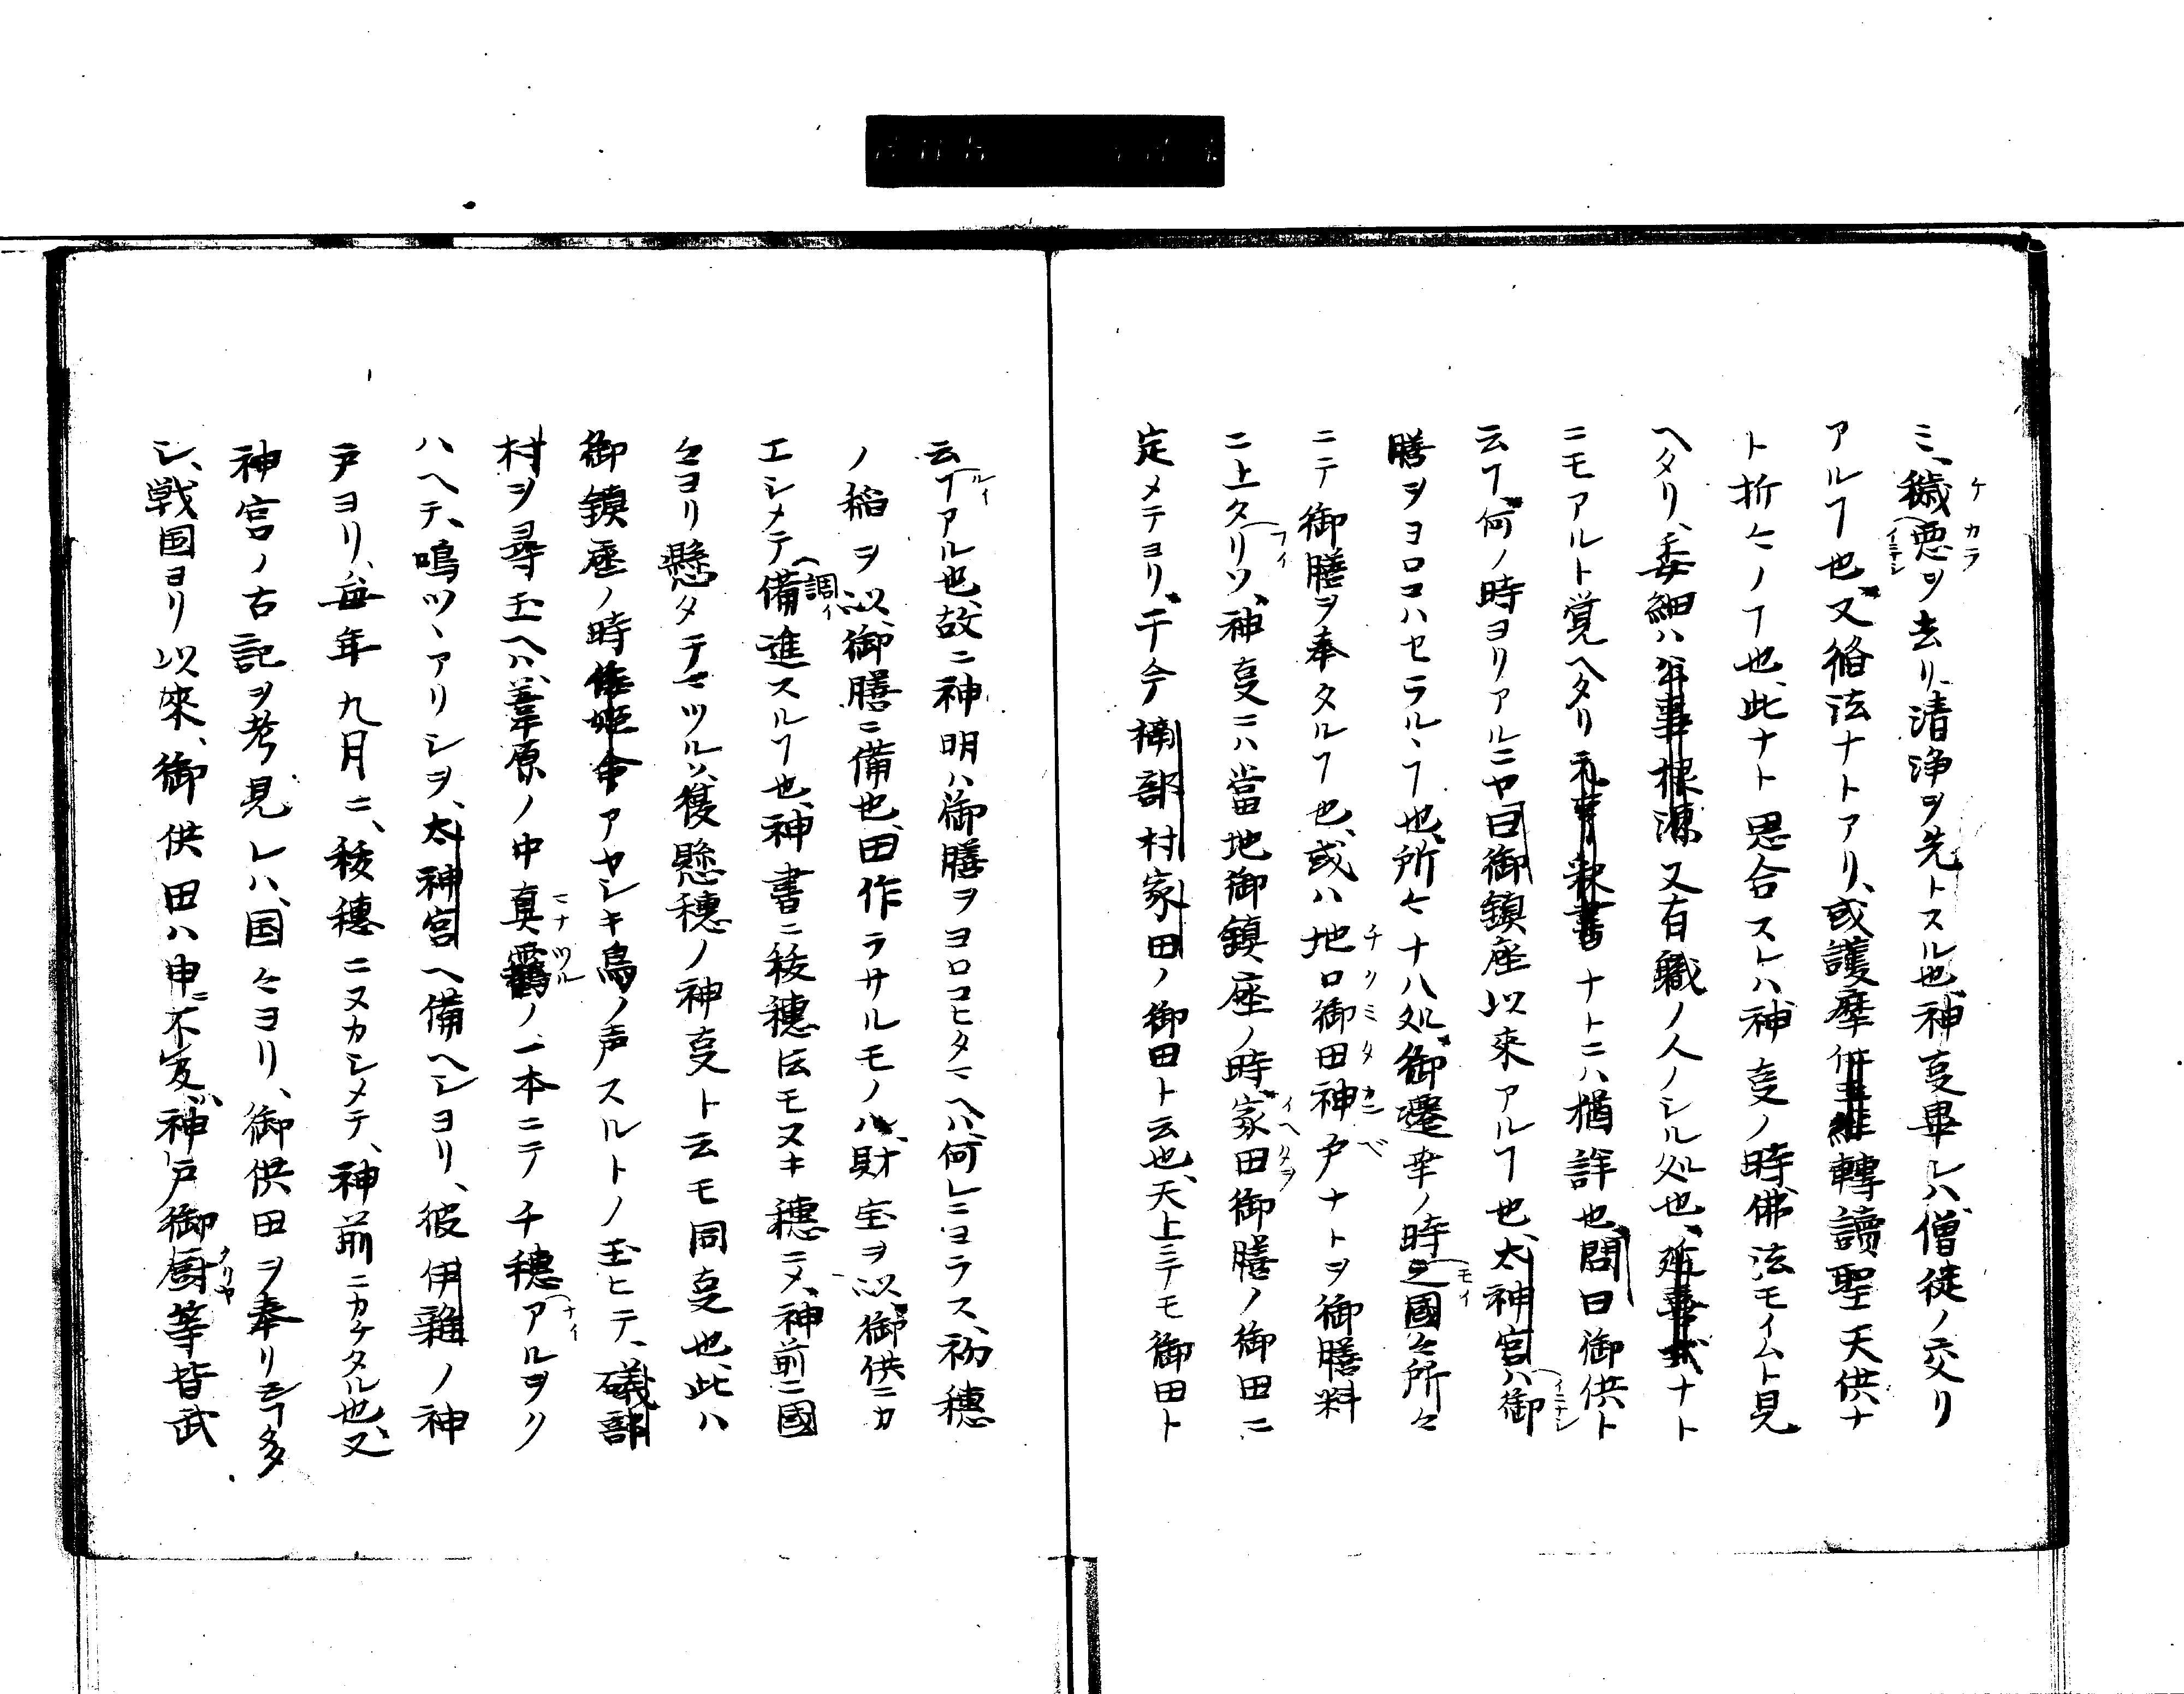 ミ、穢悪ヲ去リ、清浄ヲ先トスル也、神㕝畢レハ、僧徒ノ交リ
アルヿ也、又脩法ナトアリ、或護摩供、轉讀、聖天供ナ
ト折々ノヿ也、此ナト思合スレハ神㕝ノ時、佛法モイムト見
ヘタリ、委細ハ公事根源又有職ノ人ノシル処也、延喜式ナト
ニモアルト覚ヘタリ、元亨釈書ナトニハ猶詳也、問曰御供ト
云ヿ、何ノ時ヨリアルニヤ、曰御鎮座以來アルヿ也、太神宮ハ御
膳ヲヨロコハセラルヽヿ也、所々十八処、御遷幸ノ時、國々所々
ニテ御膳ヲ奉タルヿ也、或ハ地口御田神戸ナトヲ御膳料
ニ上タリツ、神㕝ニハ當地御鎮座ノ時、家田御膳ノ御田ニ
定メテヨリ、于今楠部村家田ノ御田ト云也、天上ニテモ御田ト
云ヿアル也、故ニ神明ハ御膳ヲヨロコヒタマヘハ、何レニヨラス、初穂
ノ稲ヲ以、御膳ニ備也、田作ラサルモノハ、財宝ヲ以、御供ニカ
エシメテ備進スルヿ也、神書ニ稜穂伝モヌキ穂ニメ、神前ニ國
々ヨリ懸タテマツルソ、穫懸穂ノ神㕝ト云モ同㕝也、此ハ
御鎮座ノ時倭姫命アヤシキ鳥ノ声スルトノ玉ヒテ、礒部
村ヲ尋玉ヘハ、葦原ノ中真鶴ノ、一本ニテ千穂アルヲク
ハヘテ、鳴ツヽアリシヲ、太神宮ヘ備ヘシヨリ、彼伊雜ノ神
戸ヨリ、毎年九月ニ、稜穂ニヌカシメテ、神前ニカケタル也、又
神宮ノ古記ヲ考見レハ、国々ヨリ、御供田ヲ奉リシヿ多
シ、戦国ヨリ以來、御供田ハ申ニ不及、神戸御厨等皆武